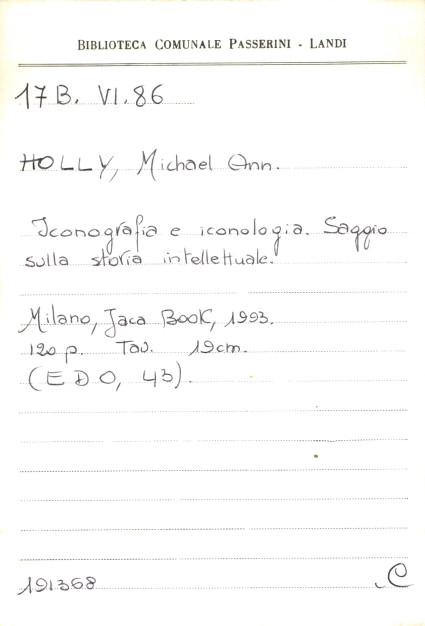 BIBLIOTECA COMUNALE PASSERINI - LANDI
17 B. VI. 86
HOLLY, Michael Ann.
Iconografia e iconologia. Saggio
sulla storia intellettuale.
Milano, Jaca Book, 1993.
120 p. Tav. 19cm.
(EDO, 43).
191368 C